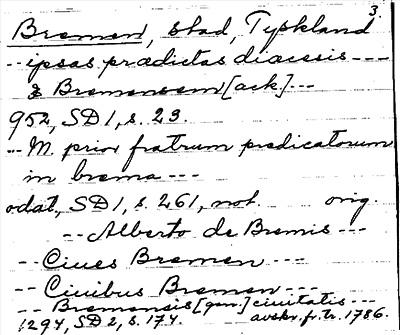 3.
Bremen, stad, Tyskland
-- ipsas prædictas diocesis ---
& Bremensem [ack.] ---
952, SD 1, s. 23.
-- M. prior fratrum predicatorum
in brema ---
odat, SD 1, s. 461, not. orig.
-- Alberto de Bremis ---
-- Ciues Bremen ---
-- Ciuibus Bremen ---
-- Bremensis [gen.] ciuitatis ---
1294, SD 2, s. 174. avskr. fr. tr. 1786.